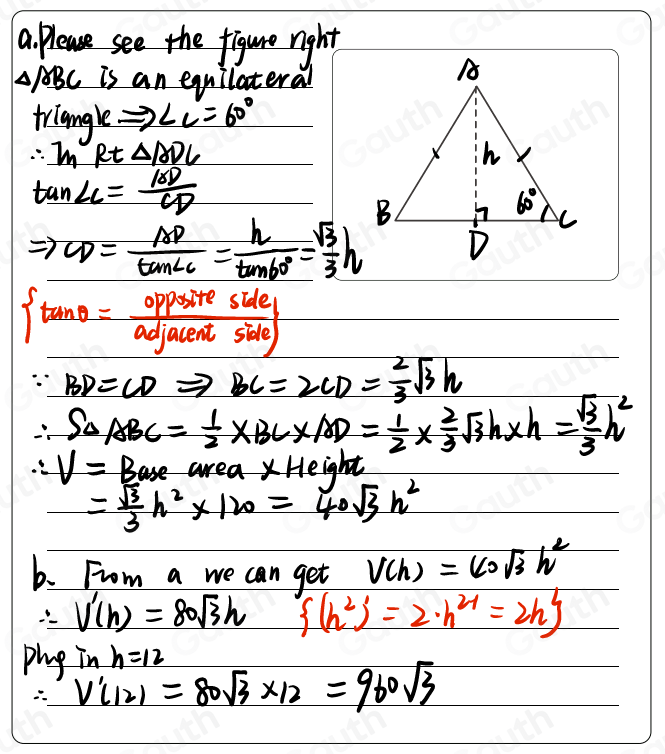 a. Please see the figure right
△ABC is an equilateral
triangle ⇒ ∠C = 60°
∴ In Rt △ADC
tan∠C = AD/CD
⇒ CD = AD/tan∠C = h/tan60° = √3/3 h
{tanθ = opposite side/adjacent side}
∵ BD = CD ⇒ BC = 2CD = 2/3 √3 h
∴ S△ABC = 1/2 × BC × AD = 1/2 × 2/3 √3 h × h = √3/3 h²
∴ V = Base area × Height
= √3/3 h² × 120 = 40√3 h²
b. From a we can get V(h) = 40√3 h²
∴ V'(h) = 80√3 h {(h²)' = 2·h²⁻¹ = 2h}
Plug in h=12
∴ V'(12) = 80√3 × 12 = 960√3
A
h
B
60°
C
D
Gauth